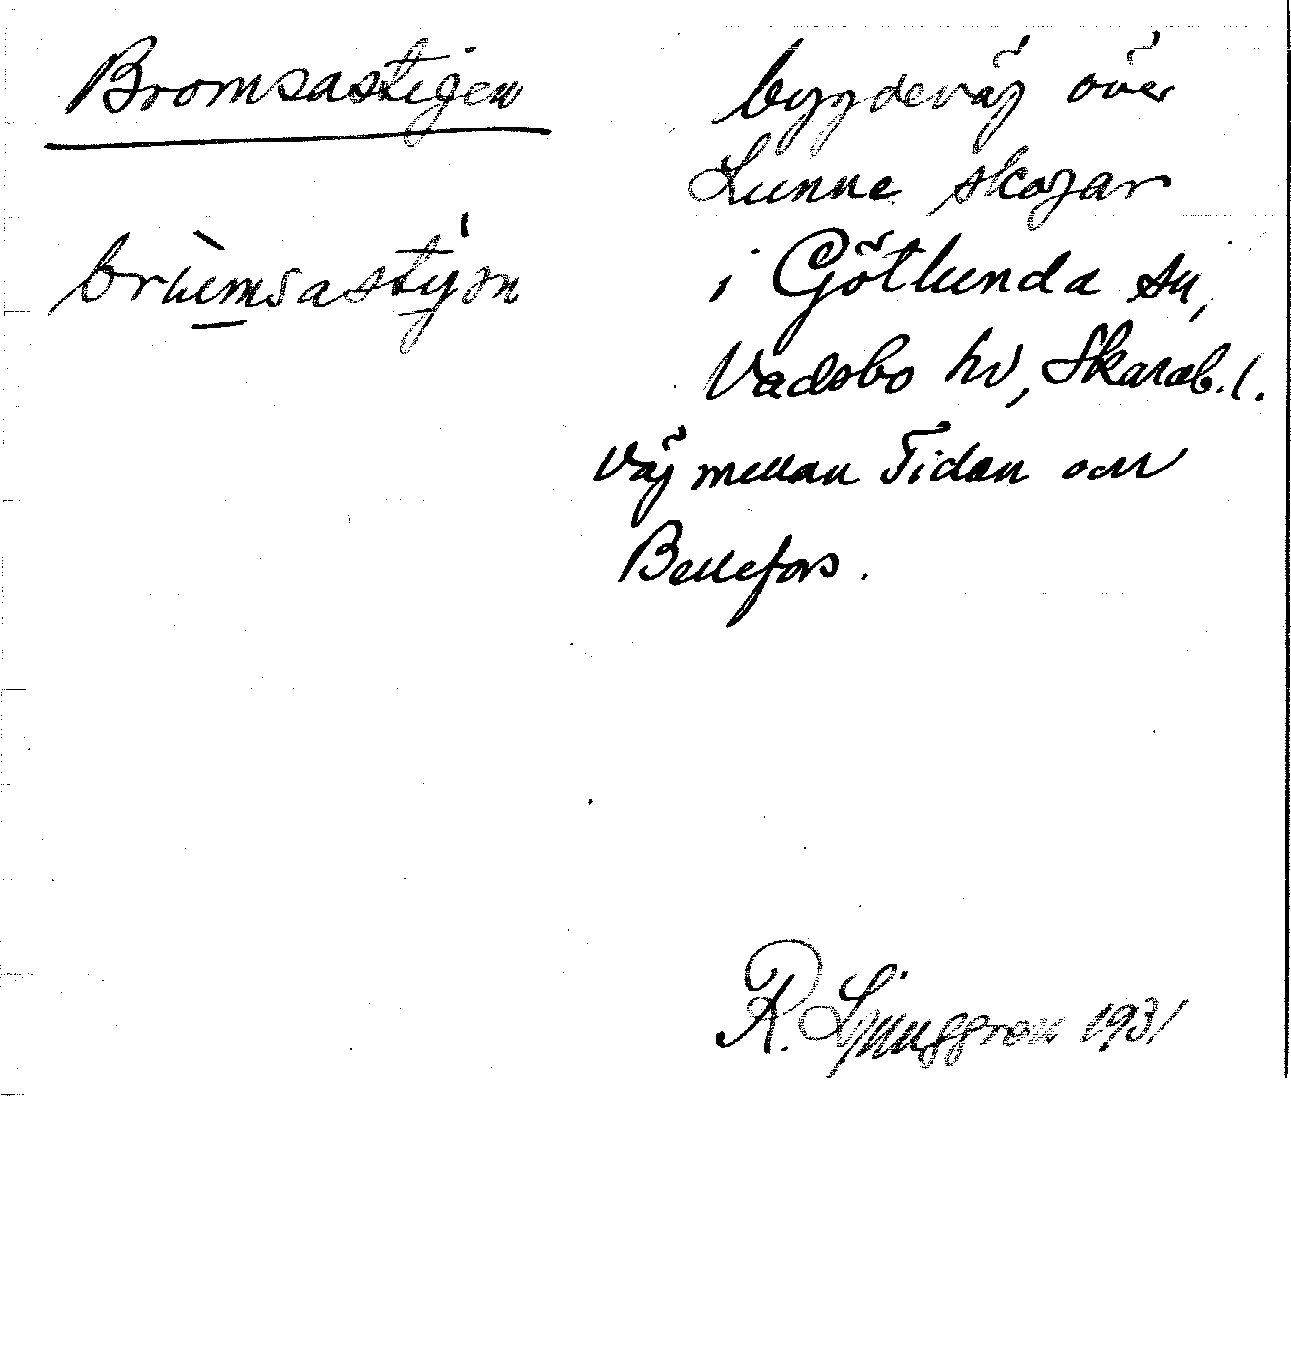 Bromsastigen
brùmsastı̣́gøn
bygdeväj över
Lunne skogar
i Götlunda sn,
Vadsbo hd, Skarab. l.
Väj mellan Tidan och
Bellefors.
R. Ljunggren 1931